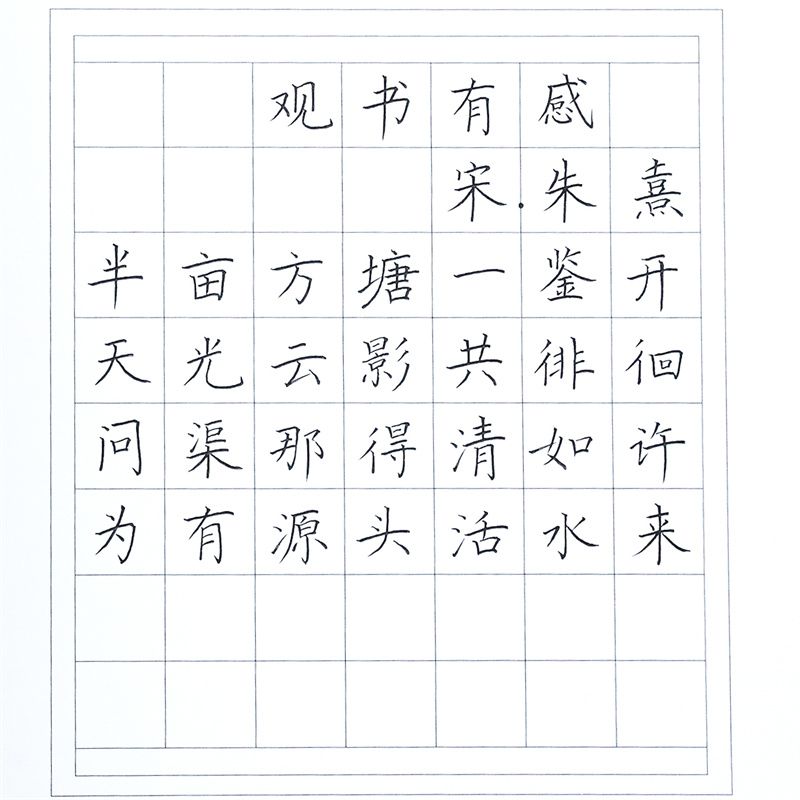 观书有感
宋.朱熹
半亩方塘一鉴开
天光云影共徘徊
问渠那得清如许
为有源头活水来